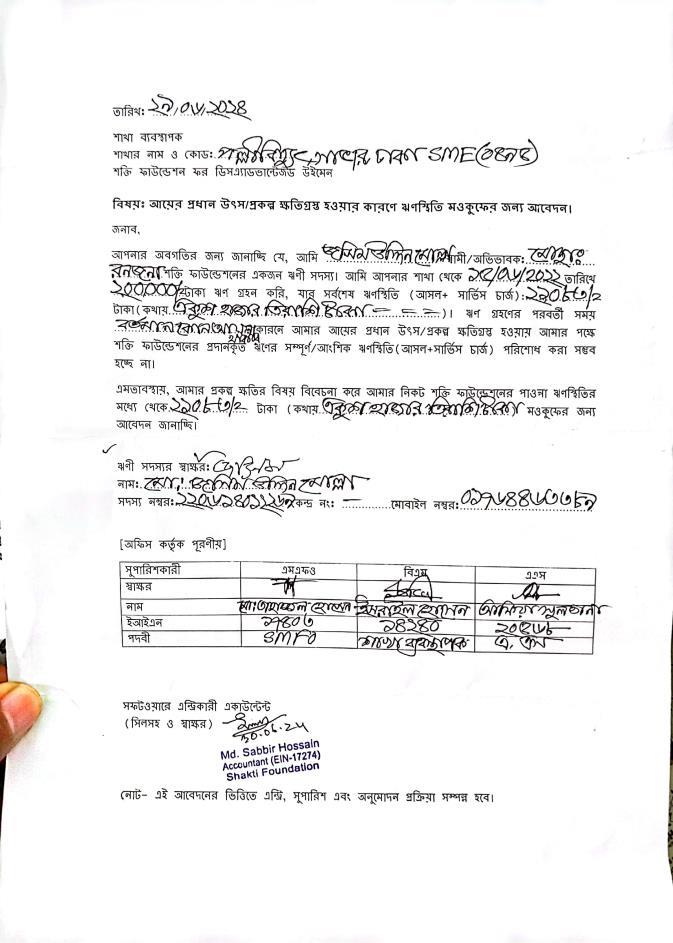 তারিখ: ২৯/০৬/২০২৪
শাখা ব্যবস্থাপক
শাখার নাম ও কোড: পল্লীবিদ্যুৎ, সাভার ঢাকা SME
শক্তি ফাউন্ডেশন ফর ডিসএ্যাডভান্টেজড উইমেন
বিষয়: আয়ের প্রধান উৎস/প্রকল্প ক্ষতিগ্রস্থ হওয়ার কারণে ঋণস্থিতি মওকুফের জন্য আবেদন।
জনাব,
আপনার অবগতির জন্য জানাচ্ছি যে, আমি জসিম উদ্দিন মোল্লা স্বামী/অভিভাবক:
শক্তি ফাউন্ডেশনের একজন ঋণী সদস্য। আমি আপনার শাখা থেকে তারিখে
২০০,০০০/= টাকা ঋণ গ্রহন করি, যার সর্বশেষ ঋণস্থিতি (আসল+ সার্ভিস চার্জ)
টাকা (কথায় একুশ হাজার তিরাশি টাকা)। ঋণ গ্রহণের পরবর্তী সময়
কারনে আমার আয়ের প্রধান উৎস/প্রকল্প ক্ষতিগ্রস্থ হওয়ায় আমার পক্ষে
শক্তি ফাউন্ডেশনের প্রদানকৃত ঋণের সম্পূর্ণ/আংশিক ঋণস্থিতি(আসল+সার্ভিস চার্জ) পরিশোধ করা সম্ভব
হচ্ছে না।
এমতাবস্থায়, আমার প্রকল্প ক্ষতির বিষয় বিবেচনা করে আমার নিকট শক্তি ফাউন্ডেশনের পাওনা ঋণস্থিতির
মধ্যে থেকে টাকা (কথায় একুশ হাজার তিরাশি টাকা মওকুফের জন্য
আবেদন জানাচ্ছি।
ঋণী সদস্যর স্বাক্ষর:
নাম: মোঃ জসিম উদ্দিন মোল্লা
সদস্য নম্বর: কেন্দ্র নং: — মোবাইল নম্বর:
[অফিস কর্তৃক পূরণীয়]
সুপারিশকারী এমএফও বিএম এএস
স্বাক্ষর
নাম ইসরাইল হোসেন আসিয়া সুলতানা
ইআইএন ১৭৪০৩ ১৪২৪০
পদবী SMFO শাখা ব্যবস্থাপক এ, এস
সফটওয়ারে এন্ট্রিকারী একাউন্টেন্ট
(সিলসহ ও স্বাক্ষর)
30.06.24
Md. Sabbir Hossain
Accountant (EIN-17274)
Shakti Foundation
নোট- এই আবেদনের ভিত্তিতে এন্ট্রি, সুপারিশ এবং অনুমোদন প্রক্রিয়া সম্পন্ন হবে।